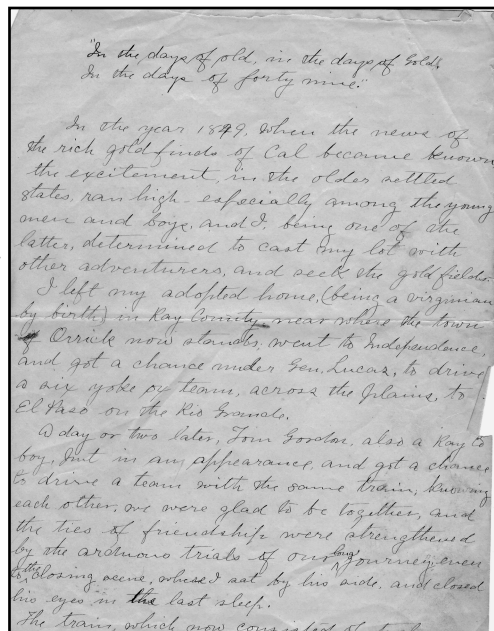 "In the days of old, in the days of Gold,
In the days of forty nine."
In the year 1849, when the news of
the rich gold finds of Cal became known
the excitement, in the older settled
states, ran high - especially among the young
men and boys, and I, being one of the
latter, determined to cast my lot with
other adventurers, and seek the gold fields.
I left my adopted home, (being a virginian
by birth) in Ray County, near where the town
of Orrick now stands, went to Independence,
and got a chance under Gen. Lucas, to drive
a six yoke ox team, across the plains, to
El Paso on the Rio Grande.
A day or two later, Tom Gordon, also a Ray Co
boy, put in an appearance, and got a chance
to drive a team with the same train; knowing
each other, we were glad to be together, and
the ties of friendship were strengthened
by the arduous trials of our long journey, even
to the closing scene, where I sat by his side, and closed
his eyes in the last sleep.
The train, which now consisted of